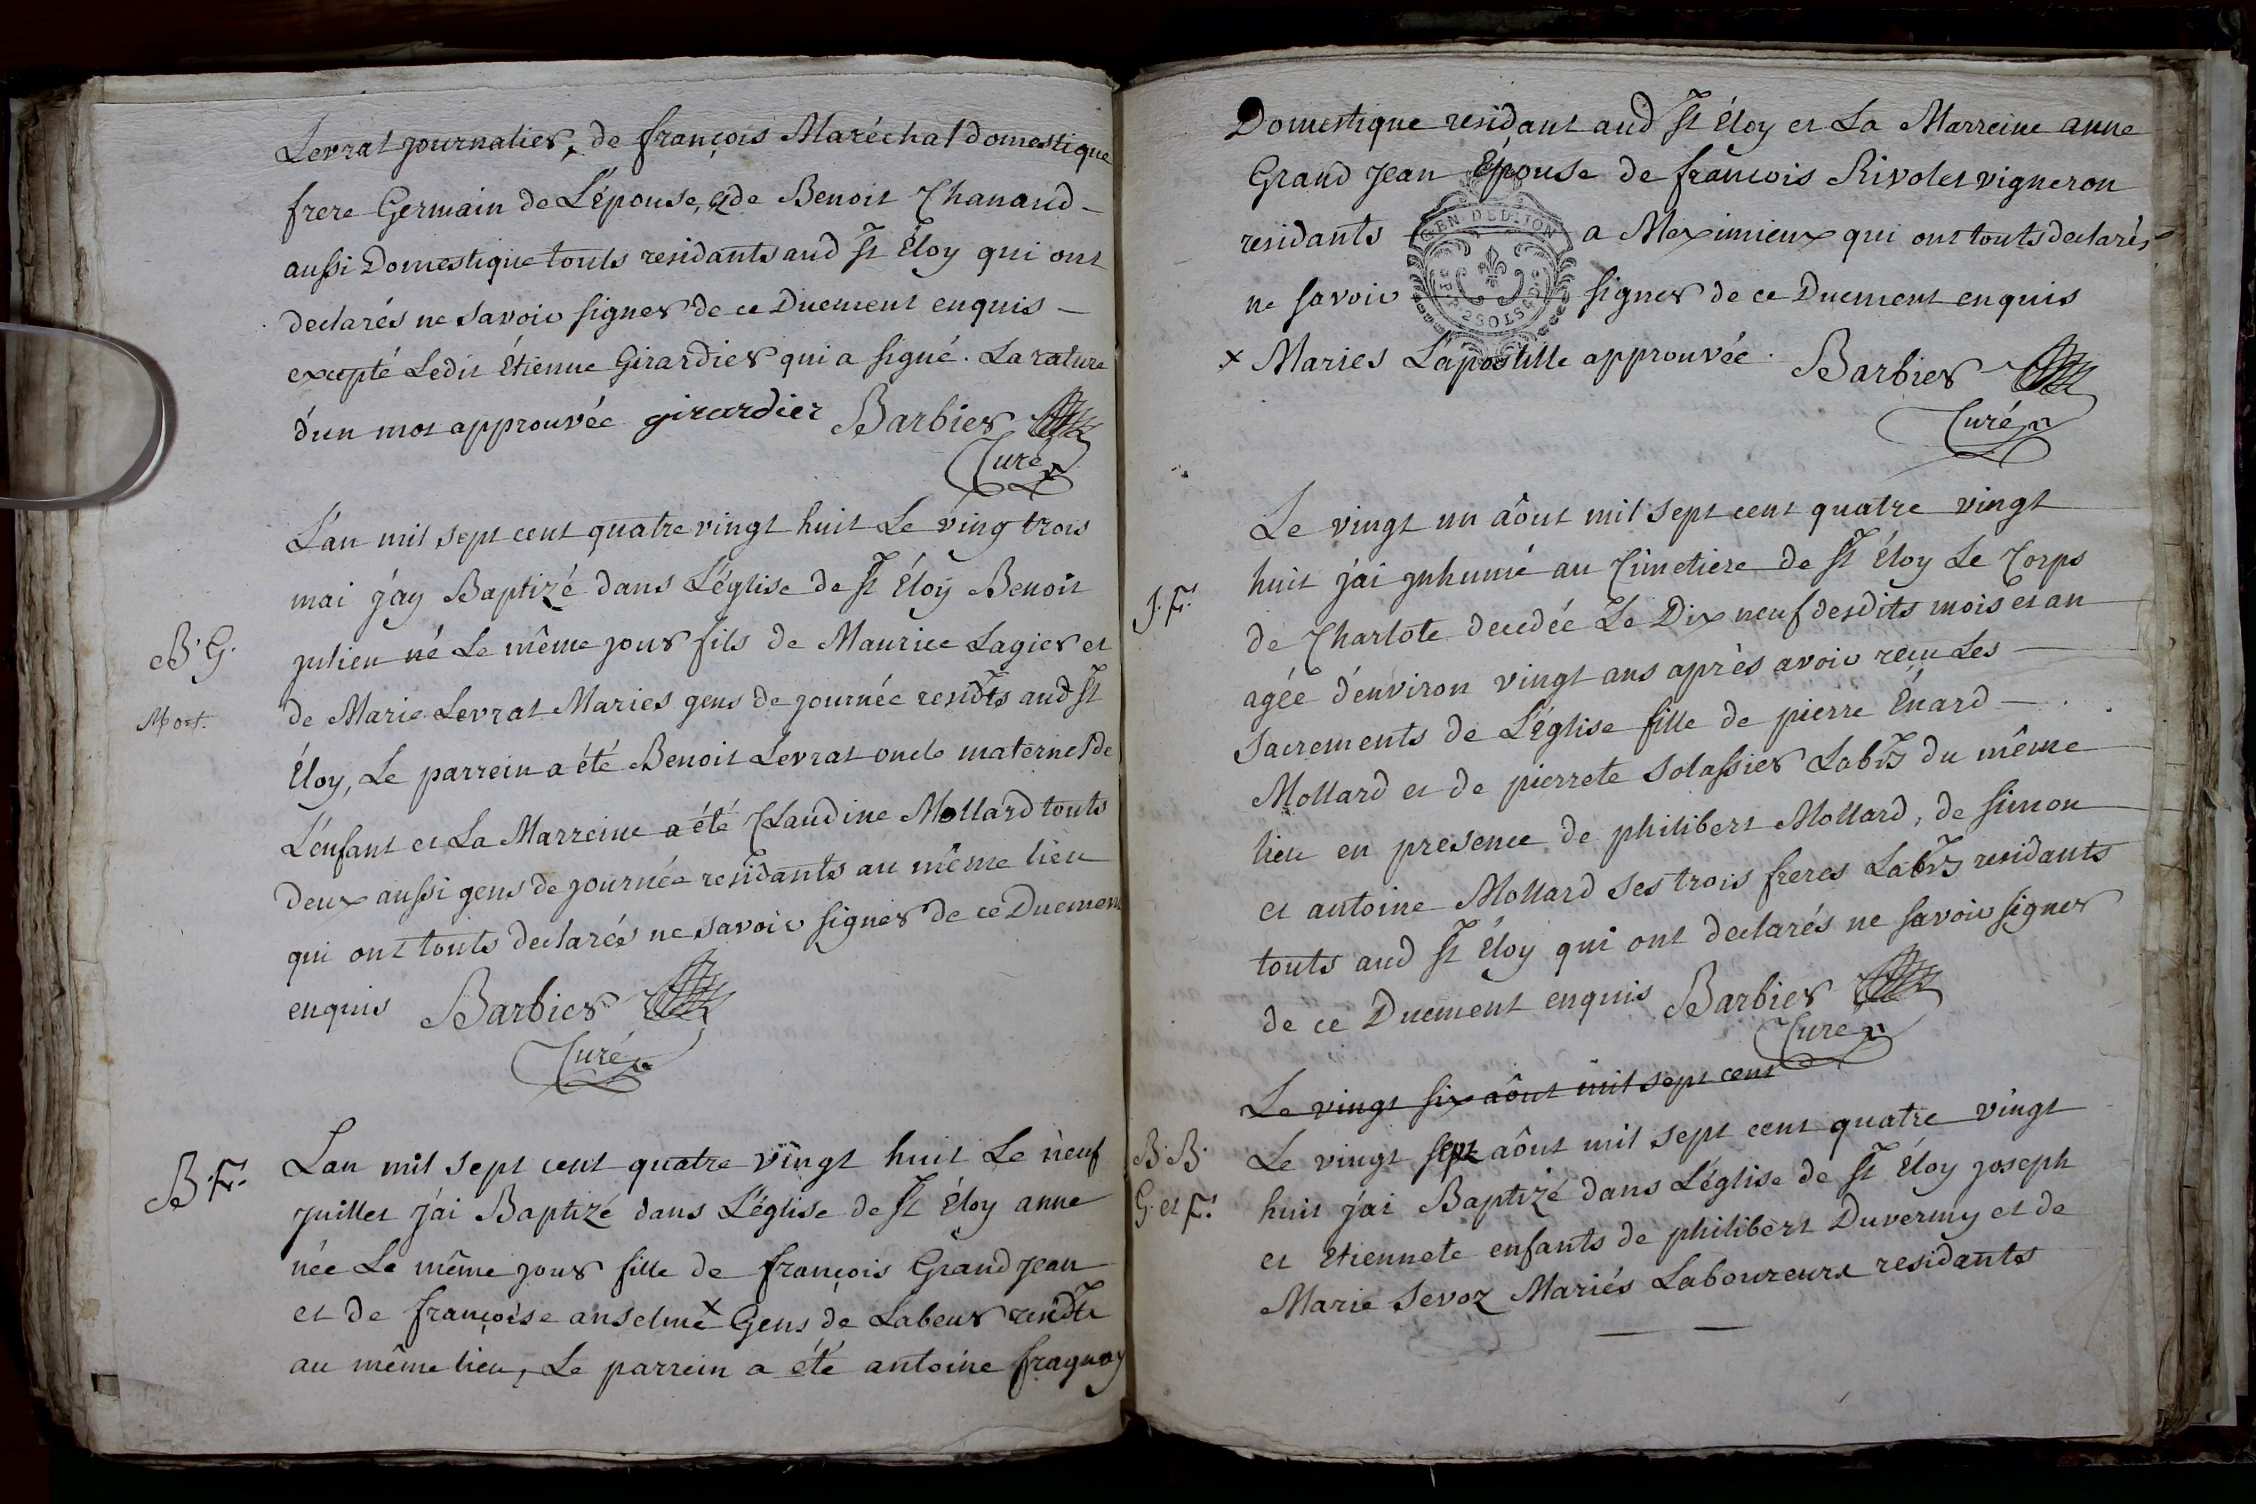 Levrat journalier, de françois Maréchal domestique
frere Germain de L'épouse, & de Benoit Chanaud –
aussi Domestique touts residants aud St Éloy qui ont
declarés ne savoir signer de ce Duement enquis –
excepté Ledit Étienne Girardier qui a signé. La rature
d'un mot approuvée girardier Barbier
Curé
L'an mil sept cent quatre vingt huit Le ving trois
mai j'ay Baptizé dans L'église de St Éloy Benoit
B. G. julien né Le même jour fils de Maurice Lagier et
Mort. de Marie Levrat Maries gens de journée residts aud St
Éloy, Le parrein a été Benoit Levrat oncle maternel de
L'enfant et La Marreine a été Claudine Mollard touts
deux aussi gens de journée residants au même lieu
qui ont touts declarés ne savoir signer de ce Duement
enquis Barbier
Curé
B. F. Lan mil sept cent quatre vingt huit Le neuf
juillet j'ai Baptizé dans L'église de St Éloy anne
née Le même jour fille de françois Grand jean
et de françoise anselme x Gens de Labeur residts
au même lieu, Le parrein a été antoine fraguay
Domestique residant aud St Éloy et La Marreine anne
Grand jean Épouse de francois Rivolet vigneron
residants a Meximieux qui ont touts declarés
GEN. DE DIJON
2 SOLS
ne savoir signer de ce Duement enquis
x Maries L'apostille approuvée. Barbier
Curé
Le vingt un aôut mil sept cent quatre vingt
J. F. huit j'ai jnhumé au Cimetiere de St Éloy Le Corps
de Charlote decedée Le Dix neuf desdits mois et an
agée d'environ vingt ans après avoir reçu Les –
Sacrements de L'église fille de pierre Énard –
Mollard et de pierrete Solassier Labrs du même
lieu en presence de philibert Mollard, de simon
et antoine Mollard ses trois freres Labrs residants
touts aud St Éloy qui ont declarés ne savoir signer
de ce Duement enquis Barbier
Curé
Le vingt six aôut mil sept cent
B. B. Le vingt sept aôut mil sept cent quatre vingt
G. et F. huit j'ai Baptizé dans L'église de St Éloy joseph
et Etiennete enfants de philibert Duvermy et de
Marie Sevoz Mariés Laboureurs residants